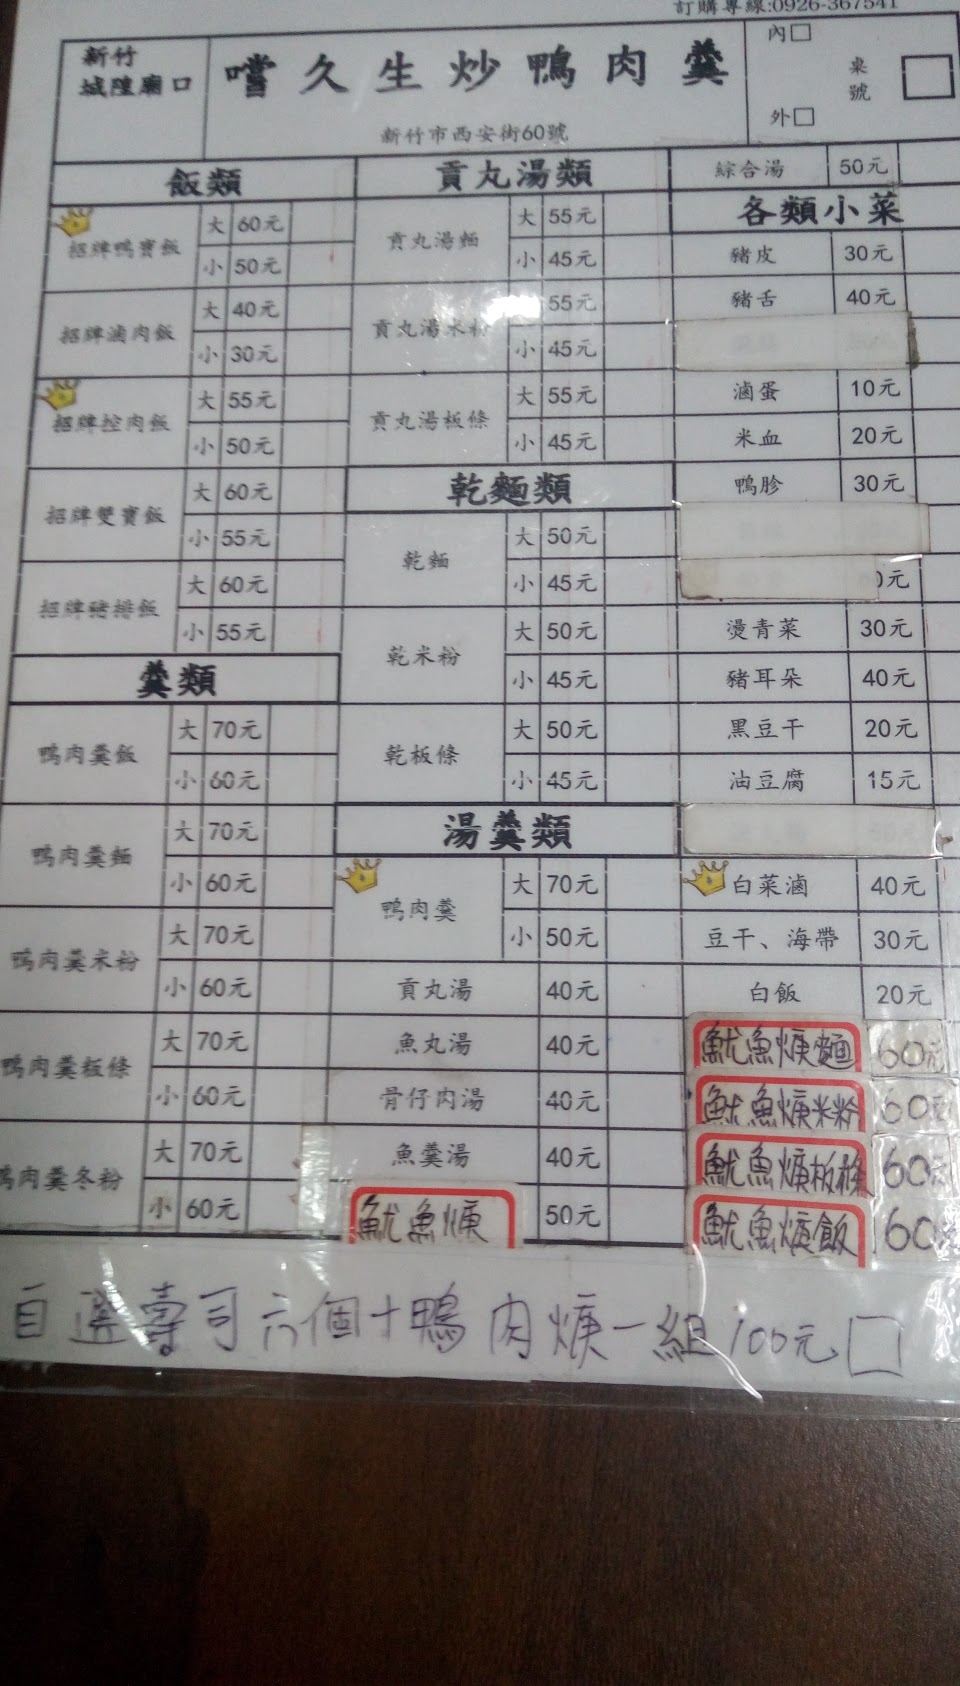 訂購專線:0926-367541
新竹
城隍廟口
嚐久生炒鴨肉羹
新竹市西安街60號
內□
外□
桌號
飯類
招牌鴨寶飯 大 60元
小 50元
招牌滷肉飯 大 40元
小 30元
招牌控肉飯 大 55元
小 50元
招牌雙寶飯 大 60元
小 55元
招牌豬排飯 大 60元
小 55元
羹類
鴨肉羹飯 大 70元
小 60元
鴨肉羹麵 大 70元
小 60元
鴨肉羹米粉 大 70元
小 60元
鴨肉羹板條 大 70元
小 60元
鴨肉羹冬粉 大 70元
小 60元
貢丸湯類
貢丸湯麵 大 55元
小 45元
貢丸湯米粉 55元
小 45元
貢丸湯板條 大 55元
小 45元
乾麵類
乾麵 大 50元
小 45元
乾米粉 大 50元
小 45元
乾板條 大 50元
小 45元
湯羹類
鴨肉羹 大 70元
小 50元
貢丸湯 40元
魚丸湯 40元
骨仔肉湯 40元
魚羹湯 40元
魷魚焿 50元
綜合湯 50元
各類小菜
豬皮 30元
豬舌 40元
滷蛋 10元
米血 20元
鴨胗 30元
0元
燙青菜 30元
豬耳朵 40元
黑豆干 20元
油豆腐 15元
白菜滷 40元
豆干、海帶 30元
白飯 20元
魷魚焿麵 60元
魷魚焿米粉 60元
魷魚焿板條 60元
魷魚焿飯 60元
自選壽司六個十鴨肉焿一組100元□